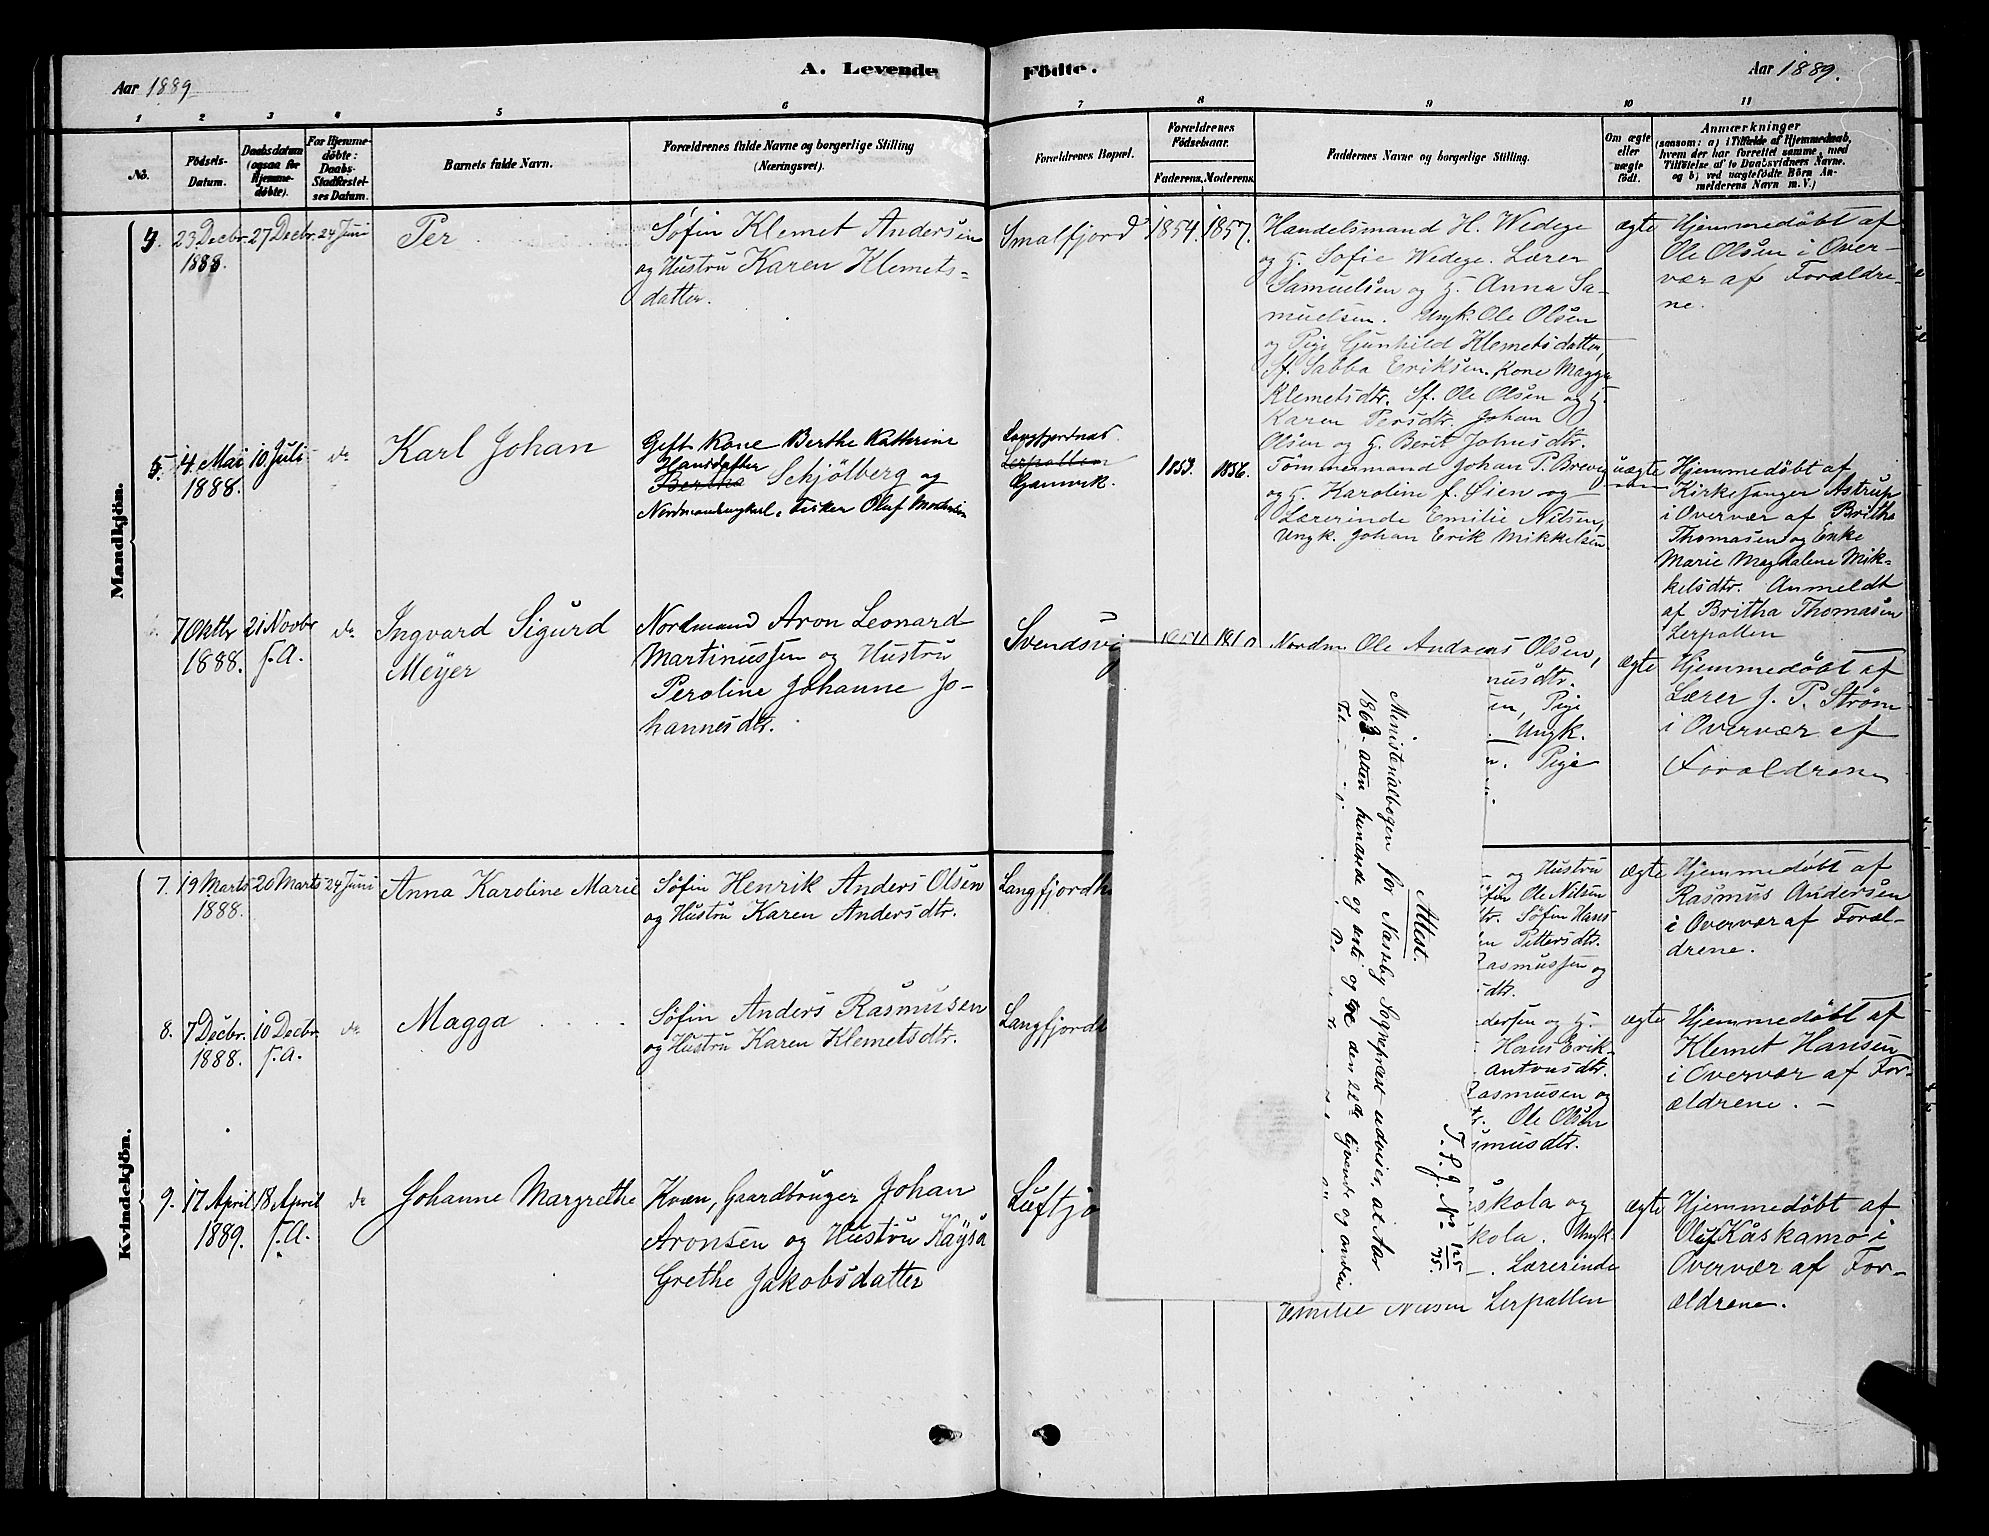 Aar 1889
A. Levende
Födte.
Aar 1889.
1 2 3 4 5 6
7 8 9 10 11
No.
Födsels-
Datum.
Daabsdatum
(ogsaa for
Hjemme-
döbte).
For Hjemme-
döbte:
Daabs-
Stadfæstel-
ses Datum.
Barnets fulde Navn.
Forældrenes fulde Navne og borgerlige Stilling
(Næringsvei).
Forældrenes Bopæl.
Forældrenes
Födselsaar.
Faderens.
Moderens.
Faddernes Navne og borgerlige Stilling.
Om ægte
eller
uægte
født.
Anmærkninger
(saasom: a) i Tilfælde af Hjemmedaab,
hvem der har forrettet samme, med
Tilføielse af to Daabsvidners Navne.
og b) ved uægtefödte Börn An-
melderens Navn m. V.)
Mandkjön.
23 Decbr.
1888.
27 Decbr.
24 Juni
Per
Søfin Klemet Andersen
og Hustru Karen Klemets-
datter.
Smalfjord
1854.
1857.
Handelsmand H. Wedege
og H. Sofie Wedege. Lærer
Samuelsen og H. Anna Sa-
muelsen. Ungk. Ole Olsen
og Pige Gunhild Klemetsdatter,
Sf. Sabba Eriksen. Kone Magga
Klemetsdtr. Sf. Ole Olsen og H.
Karen Persdtr. Johan
Olsen og H. Berit Johnsdtr.
ægte
Hjemmedøbt af
Ole Olsen i Over-
vær af Foraldre-
ne.
5.
14. Mai
1888.
10. Juli
do
Karl Johan
Gift Kone Berthe Kathrine
Hansdatter
Bertha Schjølberg og
Nordmandungkarl, Fisker Oluf
Langfjordnæs
Lerpollen
Gamvik.
1853.
1856.
Tømmermand Johan P. Brevig
og H. Karoline f. Øien og
Lærerinde Emilie Nilsen,
Ungk. Johan Erik Mikkelsen
uægte
Hjemmedøbt af
Kirkesanger Astrup
i Overvær af Britha
Thomasen og Enke
Marie Magdalene Mik-
kelsdtr. Anmeldt
af Britha Thomasen
Lerpollen
7 Oktbr
1888.
21 Novbr
f. A.
do
Ingvard Sigurd
Meyer
Nordmand Aron Leonard
Martinussen og Hustru
Peroline Johanne Jo-
hannesdtr.
Svendsvi
Nordm Ole Andreas Olsen,
nusdtr.
en, Pige
Ungk.
n. Pige
ægte
Hjemmedøbt af
Lærer J. P. Strøm
i Overvær af
Foraldrene
Kvindekjön.
7.
19 Marts
1888.
20 Marts
24 Juni
Anna Karoline Marie
Søfin Henrik Anders Olsen
og Hustru Karen Andersdtr.
Langfjordb
og Hustru
fin Ole Nilsen
dtr. Søfin Hans
en Pettersdtr.
Rasmussen og
sdtr.
ægte
Hjemmedøbt af
Rasmus Andersen
i Overvær af Foræl-
drene.
8.
7 Decbr.
1888.
10 Decbr.
f. A.
do
Magga
Søfin Anders Rasmussen
og Hustru Karen Klemetsdtr.
Langfjordb
dersen og H.
Hans Erik-
Antonsdtr.
Rasmusen og
tr. Ole Olsen
smusdtr.
ægte
Hjemmedøbt af
Klemet Hansen
i Overvær af For-
ældrene.
9.
17 April
1889.
18 April
f. A.
do
Johanne Margrethe
Kvæn, Gaardbruger Johan
Aronsen og Hustru Kaysa
Grethe Jakobsdatter
Luftjo
skola og
kola. Ungk.
Lærerinde
Emilie Nilsen Lerpollen
ægte
Hjemmedøbt af
Oluf Kåskamo i
Overvær af For-
ældrene.
T. L. J. No 125/75.
Attest.
Ministerialbogen for Næsseby Sognepræst udviser, at Aar
1863 atten hundrede og sexti og tre den 22de tyvende og anden